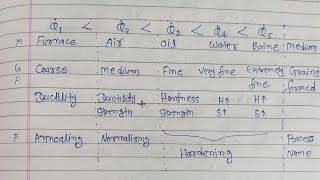 Q̇1 < Q̇2 < Q̇3 < Q̇4 < Q̇5
M Furnace Air Oil Water Brine Medium
G Coarse medium Fine Very fine Extremely fine Grains
F formed
Ductility Ductility + Hardness H↑ H↑
Strength Strength S↑ S↑
P Annealing Normalising Hardening Process
Name